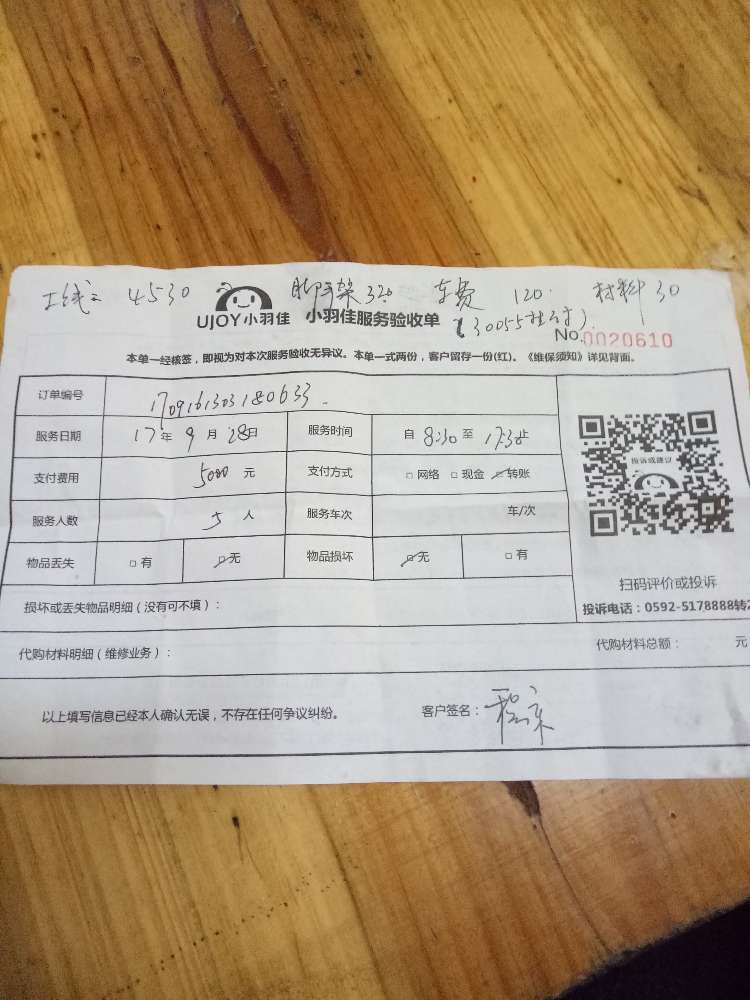 工钱：4530 脚手架320 车费 120. 材料 30
UJOY小羽佳 小羽佳服务验收单
No.0020610
本单一经核签，即视为对本次服务验收无异议。本单一式两份，客户留存一份(红)。《维保须知》详见背面。
订单编号 1709161303180633
服务日期 17年 9月 28日 服务时间 自 8:30 至 17:30止
支付费用 5000 元 支付方式 □网络 □现金 □转账
投诉或建议
服务人数 5 人 服务车次 车/次
物品丢失 □有 □无 物品损坏 □无 □有
扫码评价或投诉
损坏或丢失物品明细（没有可不填）：
投诉电话：0592-5178888转2
代购材料明细（维修业务）： 代购材料总额： 元
以上填写信息已经本人确认无误，不存在任何争议纠纷。 客户签名：